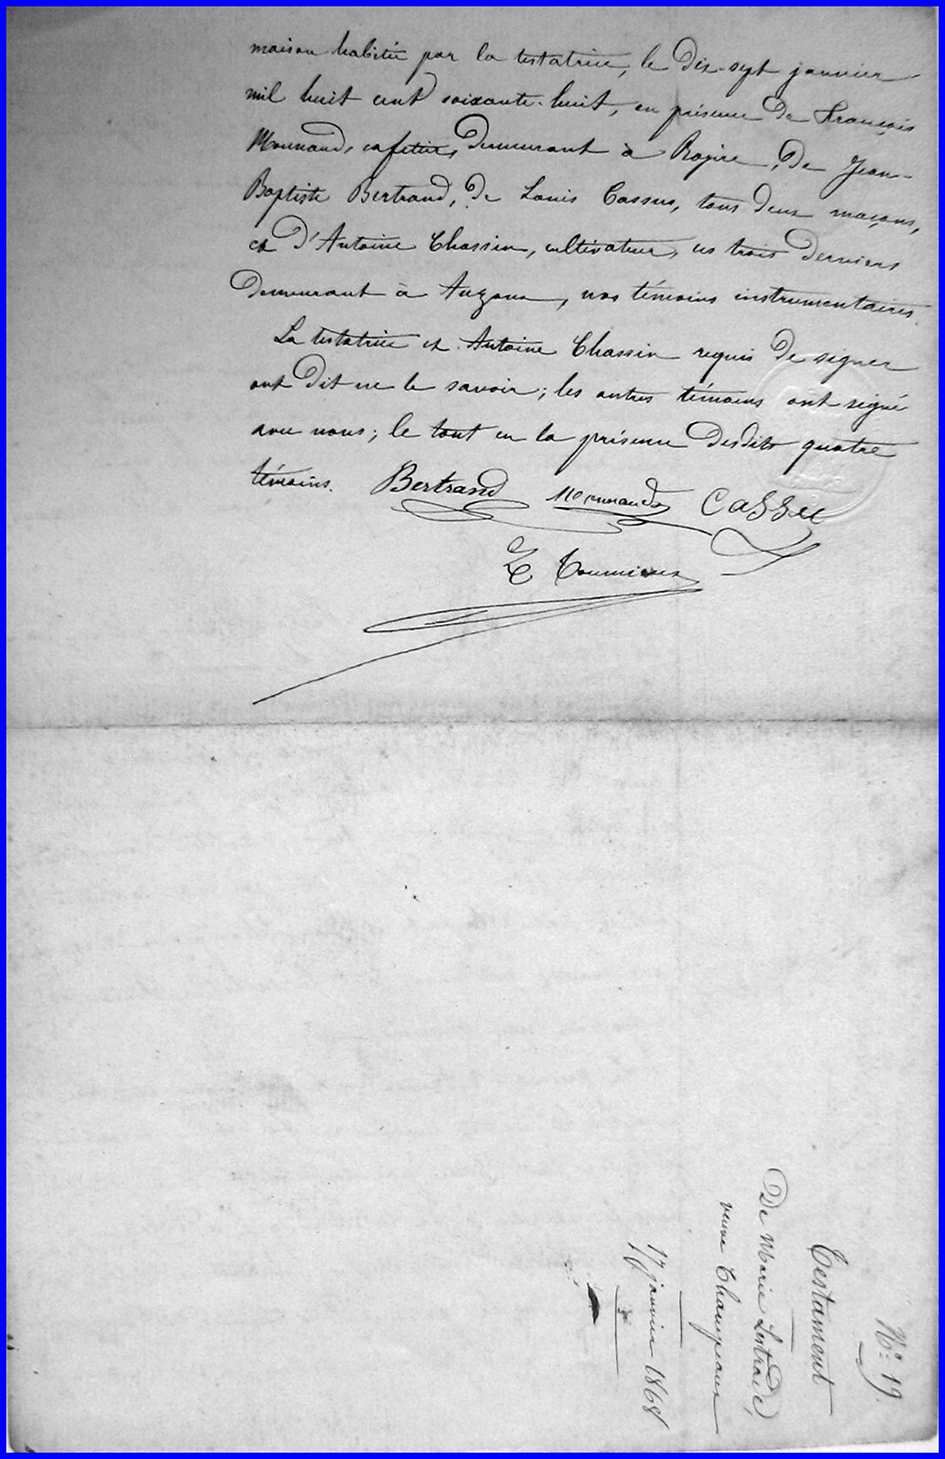 maison habitée par la testatrice, le dix-sept janvier
mil huit cent soixante-huit, en présence de François
Monnand, cafetier, demeurant à Razine, de Jean-
Baptiste Bertrand, de Louis Cassus, tous deux maçons,
et d'Antoine Chassin, cultivateur, ces trois derniers
demeurant à Auzon, nos témoins instrumentaires.
La testatrice et Antoine Chassin requis de signer
ont dit ne le savoir; les autres témoins ont signé
avec nous; le tout en la présence desdits quatre
témoins. Bertrand Monnand Cassu
N.° 19.
Testament
De Marie Lestrade,
veuve Champeaux
17 janvier 1868